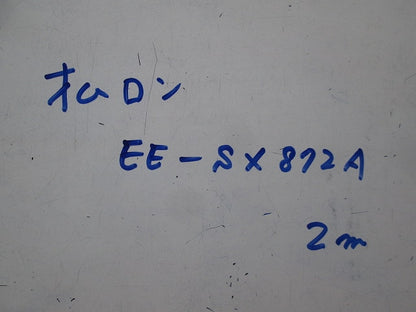 オムロン
EE-SX872A
2m